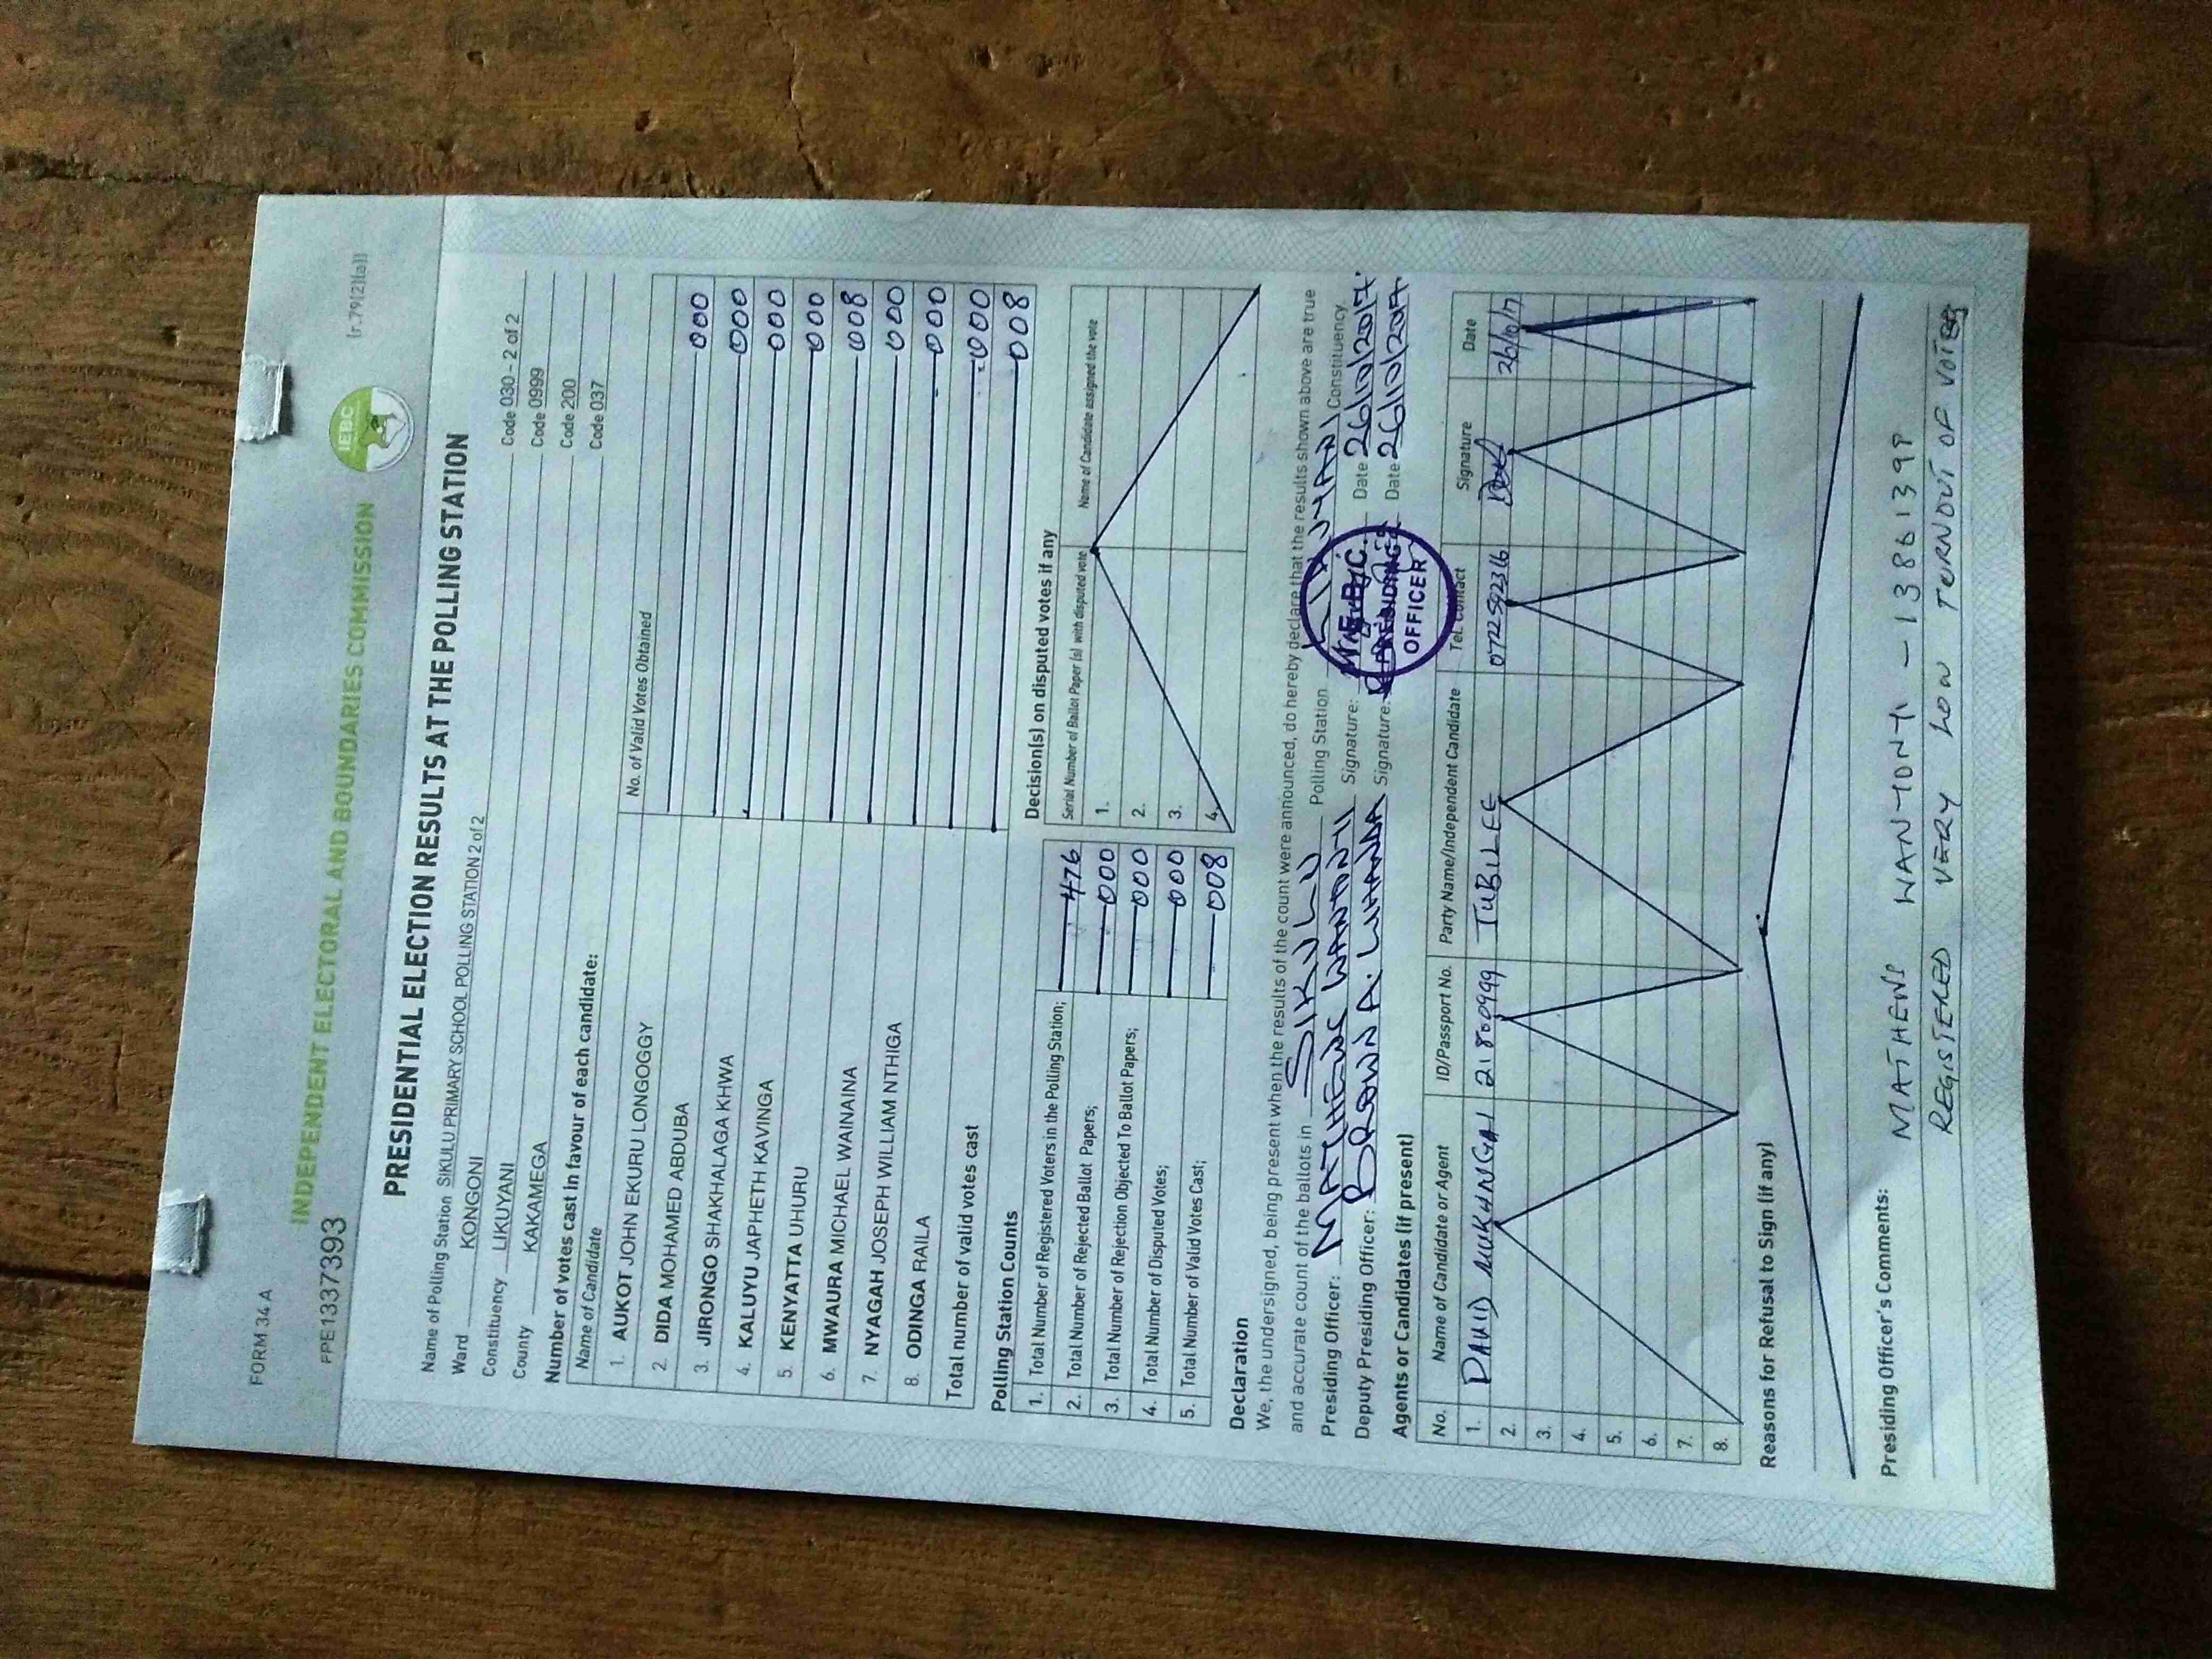 FORM 34 A
(r.79(2)(a))
PPE1337393
INDEPENDENT ELECTORAL AND BOUNDARIES COMMISSION
IEBC
PRESIDENTIAL ELECTION RESULTS AT THE POLLING STATION
Name of Polling Station SIKULU PRIMARY SCHOOL POLLING STATION 2 of 2 Code 030 - 2 of 2
Ward KONGONI Code 0999
Constituency LIKUYANI Code 200
County KAKAMEGA Code 037
Number of votes cast in favour of each candidate:
Name of Candidate No. of Valid Votes Obtained
1. AUKOT JOHN EKURU LONGOGGY 000
2. DIDA MOHAMED ABDUBA 000
3. JIRONGO SHAKHALAGA KHWA 000
4. KALUYU JAPHETH KAVINGA 000
5. KENYATTA UHURU 008
6. MWAURA MICHAEL WAINAINA 000
7. NYAGAH JOSEPH WILLIAM NTHIGA 000
8. ODINGA RAILA 000
Total number of valid votes cast 008
Polling Station Counts
1. Total Number of Registered Voters in the Polling Station; 476
2. Total Number of Rejected Ballot Papers; 000
3. Total Number of Rejection Objected To Ballot Papers; 000
4. Total Number of Disputed Votes; 000
5. Total Number of Valid Votes Cast; 008
Decision(s) on disputed votes if any
Serial Number of Ballot Paper (s) with disputed vote Name of Candidate assigned the vote
1.
2.
3.
4.
Declaration
We, the undersigned, being present when the results of the count were announced, do hereby declare that the results shown above are true
and accurate count of the ballots in SIKULU Polling Station Constituency
Presiding Officer: MATHEWS WANYONYI Signature: Date 26/10/2017
Deputy Presiding Officer: BROWN A. LUHANDA Signature: Date 26/10/2017
I.E.B.C.
PRESIDING
OFFICER
Agents or Candidates (if present)
No. Name of Candidate or Agent ID/Passport No. Party Name/Independent Candidate Tel. Contact Signature Date
1. DAVID MUKHNGAI 21800999 JUBILEE 0722592316 26/10/17
2.
3.
4.
5.
6.
7.
8.
Reasons for Refusal to Sign (if any)
Presiding Officer's Comments: MATHEWS WANYONYI - 13861398
REGISTERED VERY LOW TURNOUT OF VOTERS